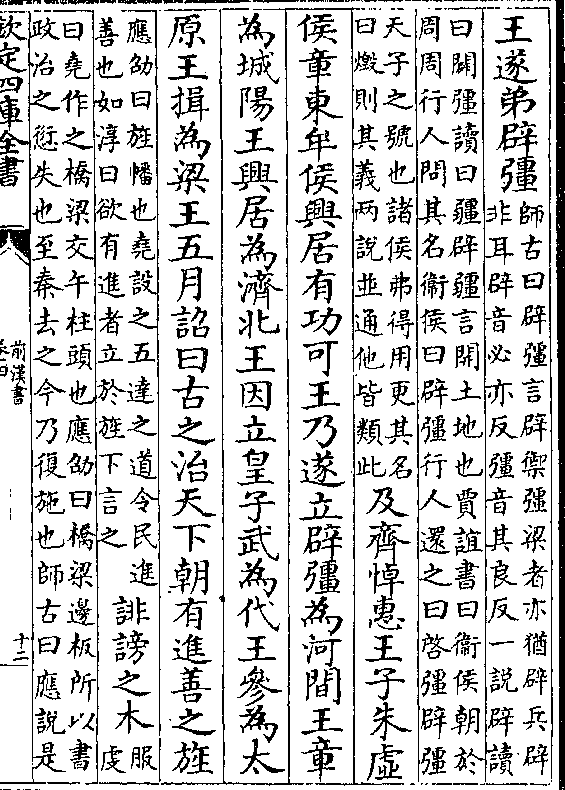 王遂弟辟彊師古曰辟彊言辟禦彊梁者亦猶辟兵辟
非耳辟音必亦反彊音其良反一説辟讀
曰闢彊讀曰疆辟疆言開土地也賈誼書曰衞侯朝於
周周行人問其名衞侯曰辟彊行人還之曰啓彊辟彊
天子之號也諸侯弗得用更其名
曰燬則其義两說並通他皆類此及齊悼惠王子朱虛
侯章東牟侯興居有功可王乃遂立辟彊為河間王章
為城陽王興居為濟北王因立皇子武為代王參為太
原王揖為梁王五月詔曰古之治天下朝有進善之旌
應劭曰旌幡也堯設之五達之道令民進
善也如淳曰欲有進者立於旌下言之誹謗之木服
虔
曰堯作之橋梁交午柱頭也應劭曰橋梁邊板所以書
政治之愆失也至秦去之今乃復施也師古曰應說是
欽定四庫全書
前漢書
卷四
十二